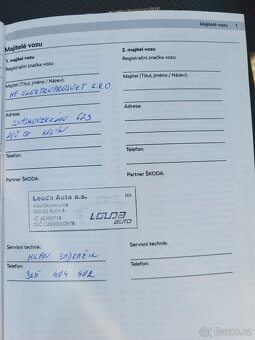 Majitelé vozu 1
Majitelé vozu
1. majitel vozu
Registrační značka vozu:
Majitel (Titul, jméno / Název):
HP ELEKTROPROJEKT S.R.O
Adresa:
280 02 KOLÍN
Telefon:
Partner ŠKODA:
Louda Auto a.s.
Havlíčkova ulice
280 02 Kolín 4
LOUDA
AUTO
Servisní technik:
MILAN
Telefon:
2. majitel vozu
Registrační značka vozu:
Majitel (Titul, jméno / Název):
Adresa:
Telefon:
Partner ŠKODA:
Servisní technik:
Telefon:
Bazoš.cz